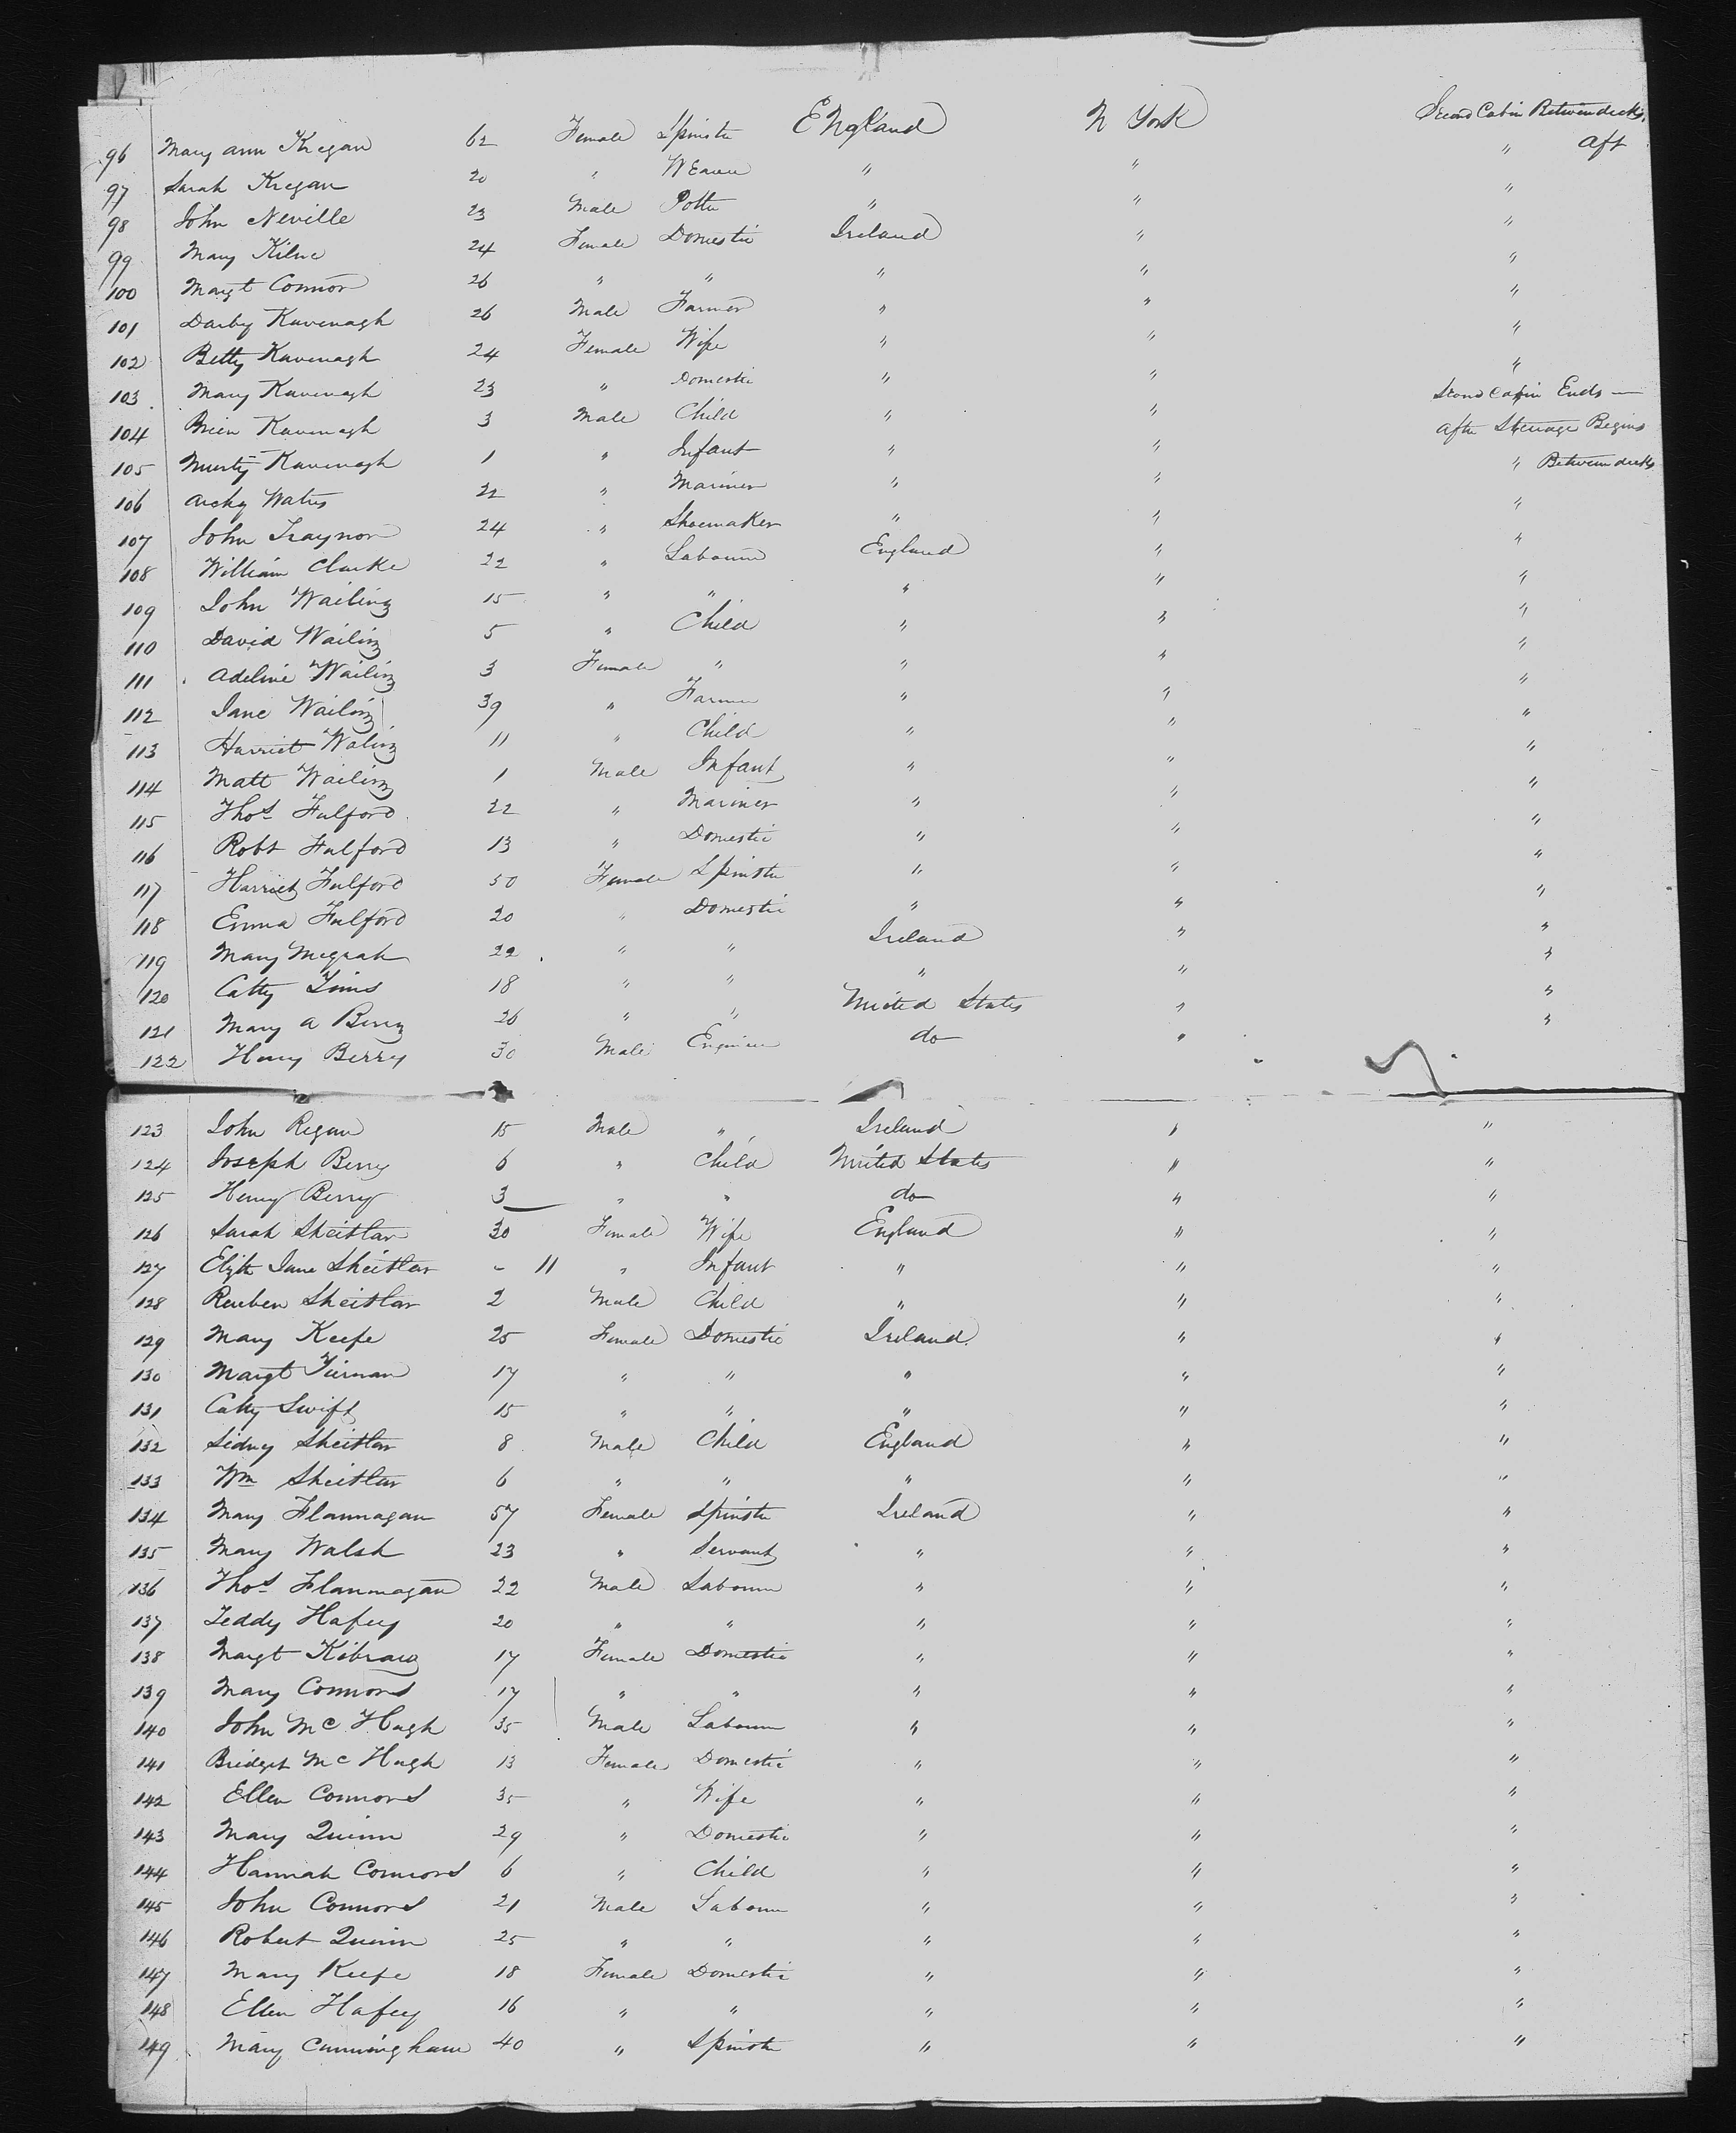 96 Mary ann Kregan 62 Female Spinster England N York Second Cabin Between decks,
97 Sarah Kregan 20 " WEaver " " " aft
98 John Neville 23 Male Potter " " "
99 Mary Kilne 24 Female Domestic Ireland " "
100 Margt Connor 26 " " " " "
101 Darby Kavenagh 26 Male Farmer " " "
102 Betty Kavenagh 24 Female Wife " " "
103 Mary Kavenagh 23 " Domestic " " "
104 Brien Kavenagh 3 Male Child " " Second Cabin Ends —
105 Murty Kavenagh 1 " Infant " " After Steerage Begins
106 Archy Waters 22 " Mariner " " " Between decks
107 John Traynor 24 " Shoemaker " " "
108 William Clarke 22 " Labourer England " "
109 John Wailing 15 " " " " "
110 David Wailing 5 " Child " " "
111 Adeline Wailing 3 Female " " " "
112 Jane Wailing 39 " Farmer " " "
113 Harriet Waling 11 " Child " " "
114 Matt Wailing 1 Male Infant " " "
115 Thos Fulford 22 " Mariner " " "
116 Robt Fulford 13 " Domestic " " "
117 Harriet Fulford 50 Female Spinster " " "
118 Emma Fulford 20 " Domestic " " "
119 Mary Mcgrah 22 " " Ireland " "
120 Catty Tims 18 " " " " "
121 Mary A Berry 26 " " United States " "
122 Henry Berry 30 Male Engineer do " "
123 John Regan 15 Male " Ireland " "
124 Joseph Berry 6 " Child United States " "
125 Henry Berry 3 " " do " "
126 Sarah Sheitlar 30 Female Wife England " "
127 Elizth Jane Sheitlar - 11 " Infant " " "
128 Reuben Sheitlar 2 Male Child " " "
129 Mary Keefe 25 Female Domestic Ireland " "
130 Margt Tiernan 17 " " " " "
131 Catty Swift 15 " " " " "
132 Sidney Sheitlar 8 Male Child England " "
133 Wm Sheitlar 6 " " " " "
134 Mary Flannagan 57 Female Spinster Ireland " "
135 Mary Walsh 23 " Servant " " "
136 Thos Flannagan 22 Male Labourer " " "
137 Teddy Hafey 20 " " " " "
138 Margt 17 Female Domestic " " "
139 Mary Connors 17 " " " " "
140 John Mc Hugh 35 Male Labourer " " "
141 Bridget Mc Hugh 13 Female Domestic " " "
142 Ellen Connors 35 " Wife " " "
143 Mary Quinn 29 " Domestic " " "
144 Hannah Connors 6 " Child " " "
145 John Connors 21 Male Labourer " " "
146 Robert Quinn 25 " " " " "
147 Mary Keefe 18 Female Domestic " " "
148 Ellen Hafey 16 " " " " "
149 Mary Cunningham 40 " Spinster " " "